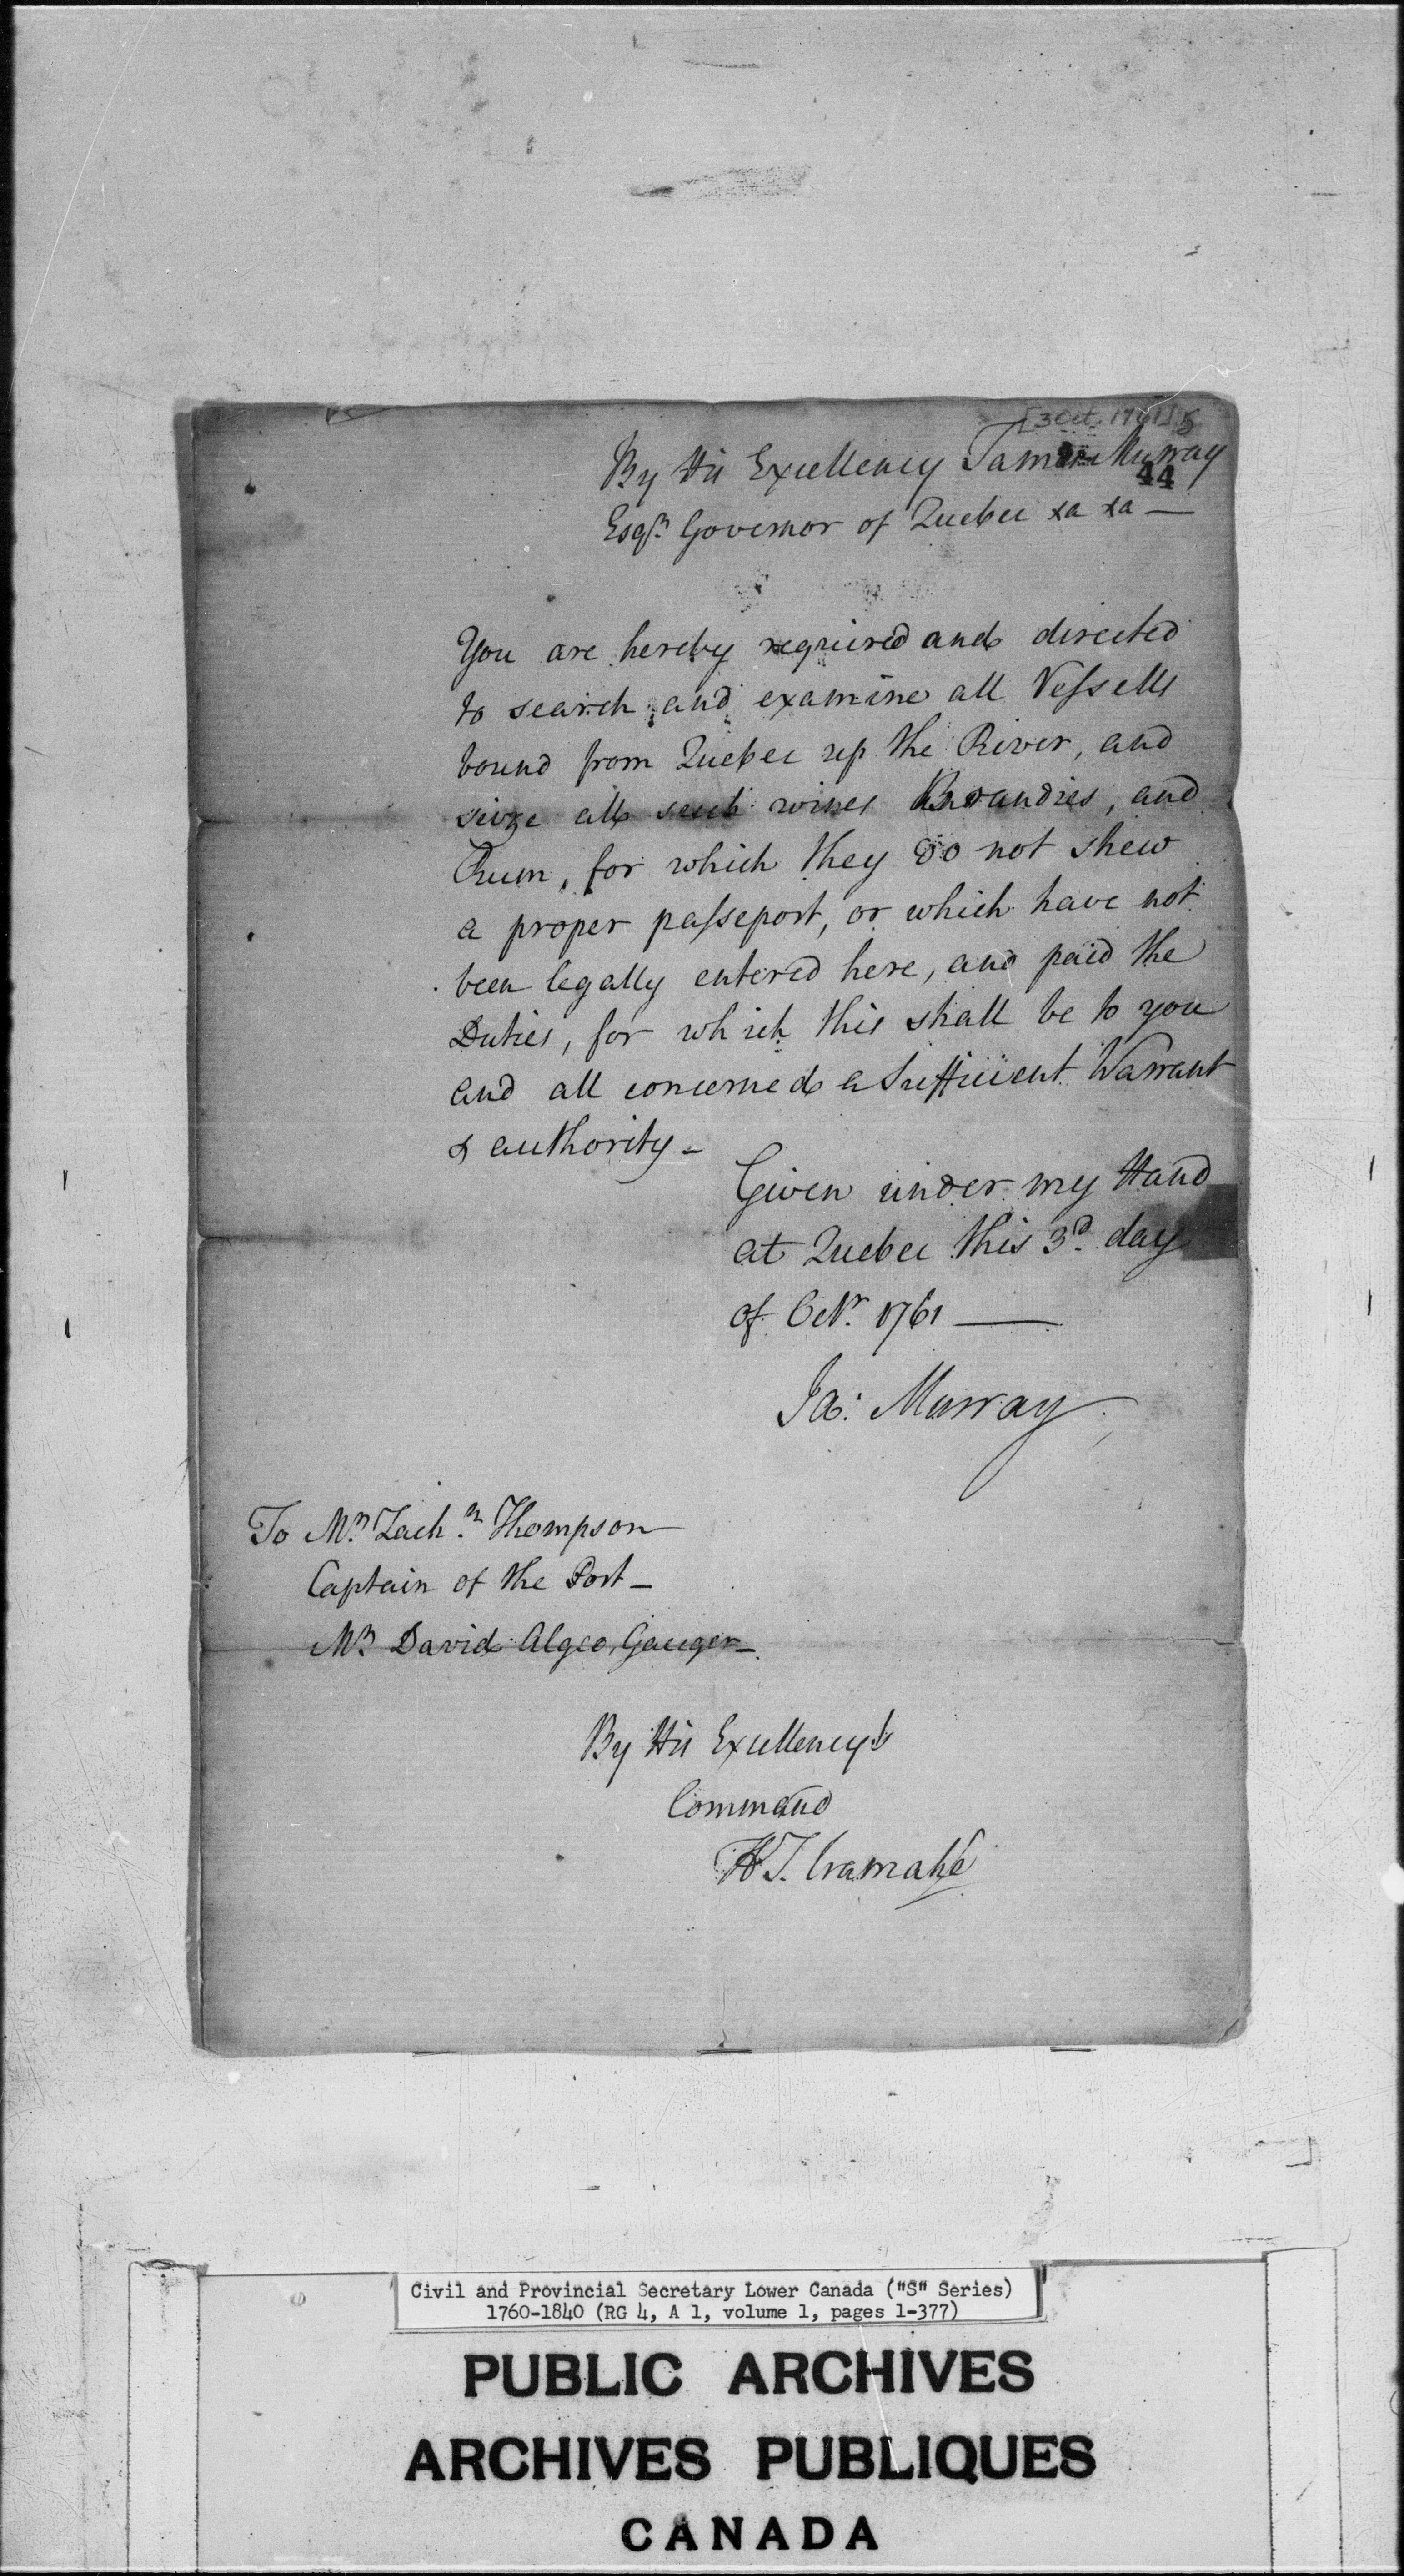 [3 Oct. 1761] 5
By His Excellency James Murray
44
Esqr. Governor of Quebec &a &a —
You are hereby required and directed
to search and examine all Vessells
bound from Quebec up the River, and
seize all such wines Brandies, and
Rum, for which they do not shew
a proper passeport, or which have not
been legally entered here, and paid the
Duties, for which this shall be to you
and all concerned a Sufficient Warrant
& authority -
Given under my Hand
at Quebec this 3d. day
of Octr. 1761 —
Ja: Murray
To Mr. Zachn. Thompson
Captain of the Port -
Mr. David Algeo, Gauger -
By His Excellency's
Command
H T. Cramahé
Civil and Provincial Secretary Lower Canada ("S" Series)
1760-1840 (RG 4, A 1, volume 1, pages 1-377)
PUBLIC ARCHIVES
ARCHIVES PUBLIQUES
CANADA